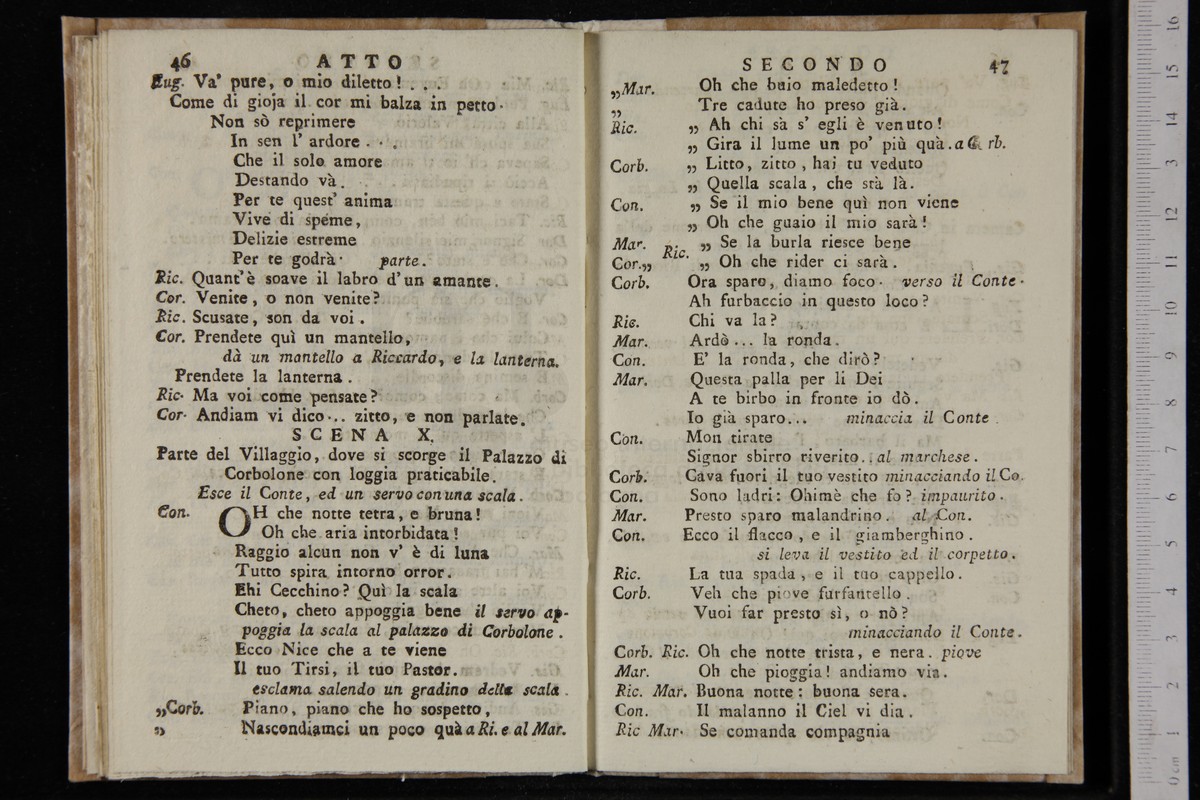 46 ATTO
Eug. Va' pure, o mio diletto! . . .
Come di gioja il cor mi balza in petto.
Non sò reprimere
In sen l' ardore . . .
Che il solo amore
Destando và.
Per te quest' anima
Vive di speme,
Delizie estreme
Per te godrà. parte.
Ric. Quant'è soave il labro d'un amante.
Cor. Venite, o non venite?
Ric. Scusate, son da voi.
Cor. Prendete quì un mantello,
dà un mantello a Riccardo, e la lanterna.
Prendete la lanterna.
Ric. Ma voi come pensate?
Cor. Andiam vi dico... zitto, e non parlate.
SCENA X.
Parte del Villaggio, dove si scorge il Palazzo di
Corbolone con loggia praticabile.
Esce il Conte, ed un servo con una scala.
Con. OH che notte tetra, e bruna!
Oh che aria intorbidata!
Raggio alcun non v' è di luna
Tutto spira intorno orror.
Ehi Cecchino? Quì la scala
Cheto, cheto appoggia bene il servo ap-
poggia la scala al palazzo di Corbolone.
Ecco Nice che a te viene
Il tuo Tirsi, il tuo Pastor.
esclama salendo un gradino della scala.
„Corb. Piano, piano che ho sospetto,
„ Nascondiamci un poco quà a Ri. e al Mar.
SECONDO 47
„Mar. Oh che buio maledetto!
„ Tre cadute ho preso già.
Ric. „ Ah chi sà s' egli è venuto!
„ Gira il lume un po' più quà. a Corb.
Corb. „ Litto, zitto, hai tu veduto
„ Quella scala, che stà là.
Con. „ Se il mio bene quì non viene
„ Oh che guaio il mio sarà!
Mar. Ric. „ Se la burla riesce bene
Cor.„ „ Oh che rider ci sarà.
Corb. Ora sparo, diamo foco. verso il Conte.
Ah furbaccio in questo loco?
Ric. Chi va la?
Mar. Ardò... la ronda.
Con. E' la ronda, che dirò?
Mar. Questa palla per li Dei
A te birbo in fronte io dò.
Io già sparo... minaccia il Conte.
Con. Mon tirate
Signor sbirro riverito. al marchese.
Corb. Cava fuori il tuo vestito minacciando il Co.
Con. Sono ladri: Ohimè che fo? impaurito.
Mar. Presto sparo malandrino. al Con.
Con. Ecco il flacco, e il giamberghino.
si leva il vestito ed il corpetto.
Ric. La tua spada, e il tuo cappello.
Corb. Veh che piove furfantello.
Vuoi far presto sì, o nò?
minacciando il Conte.
Corb. Ric. Oh che notte trista, e nera. piove
Mar. Oh che pioggia! andiamo via.
Ric. Mar. Buona notte: buona sera.
Con. Il malanno il Ciel vi dia.
Ric Mar. Se comanda compagnia
0 cm 1 2 3 4 5 6 7 8 9 10 11 12 13 14 15 16